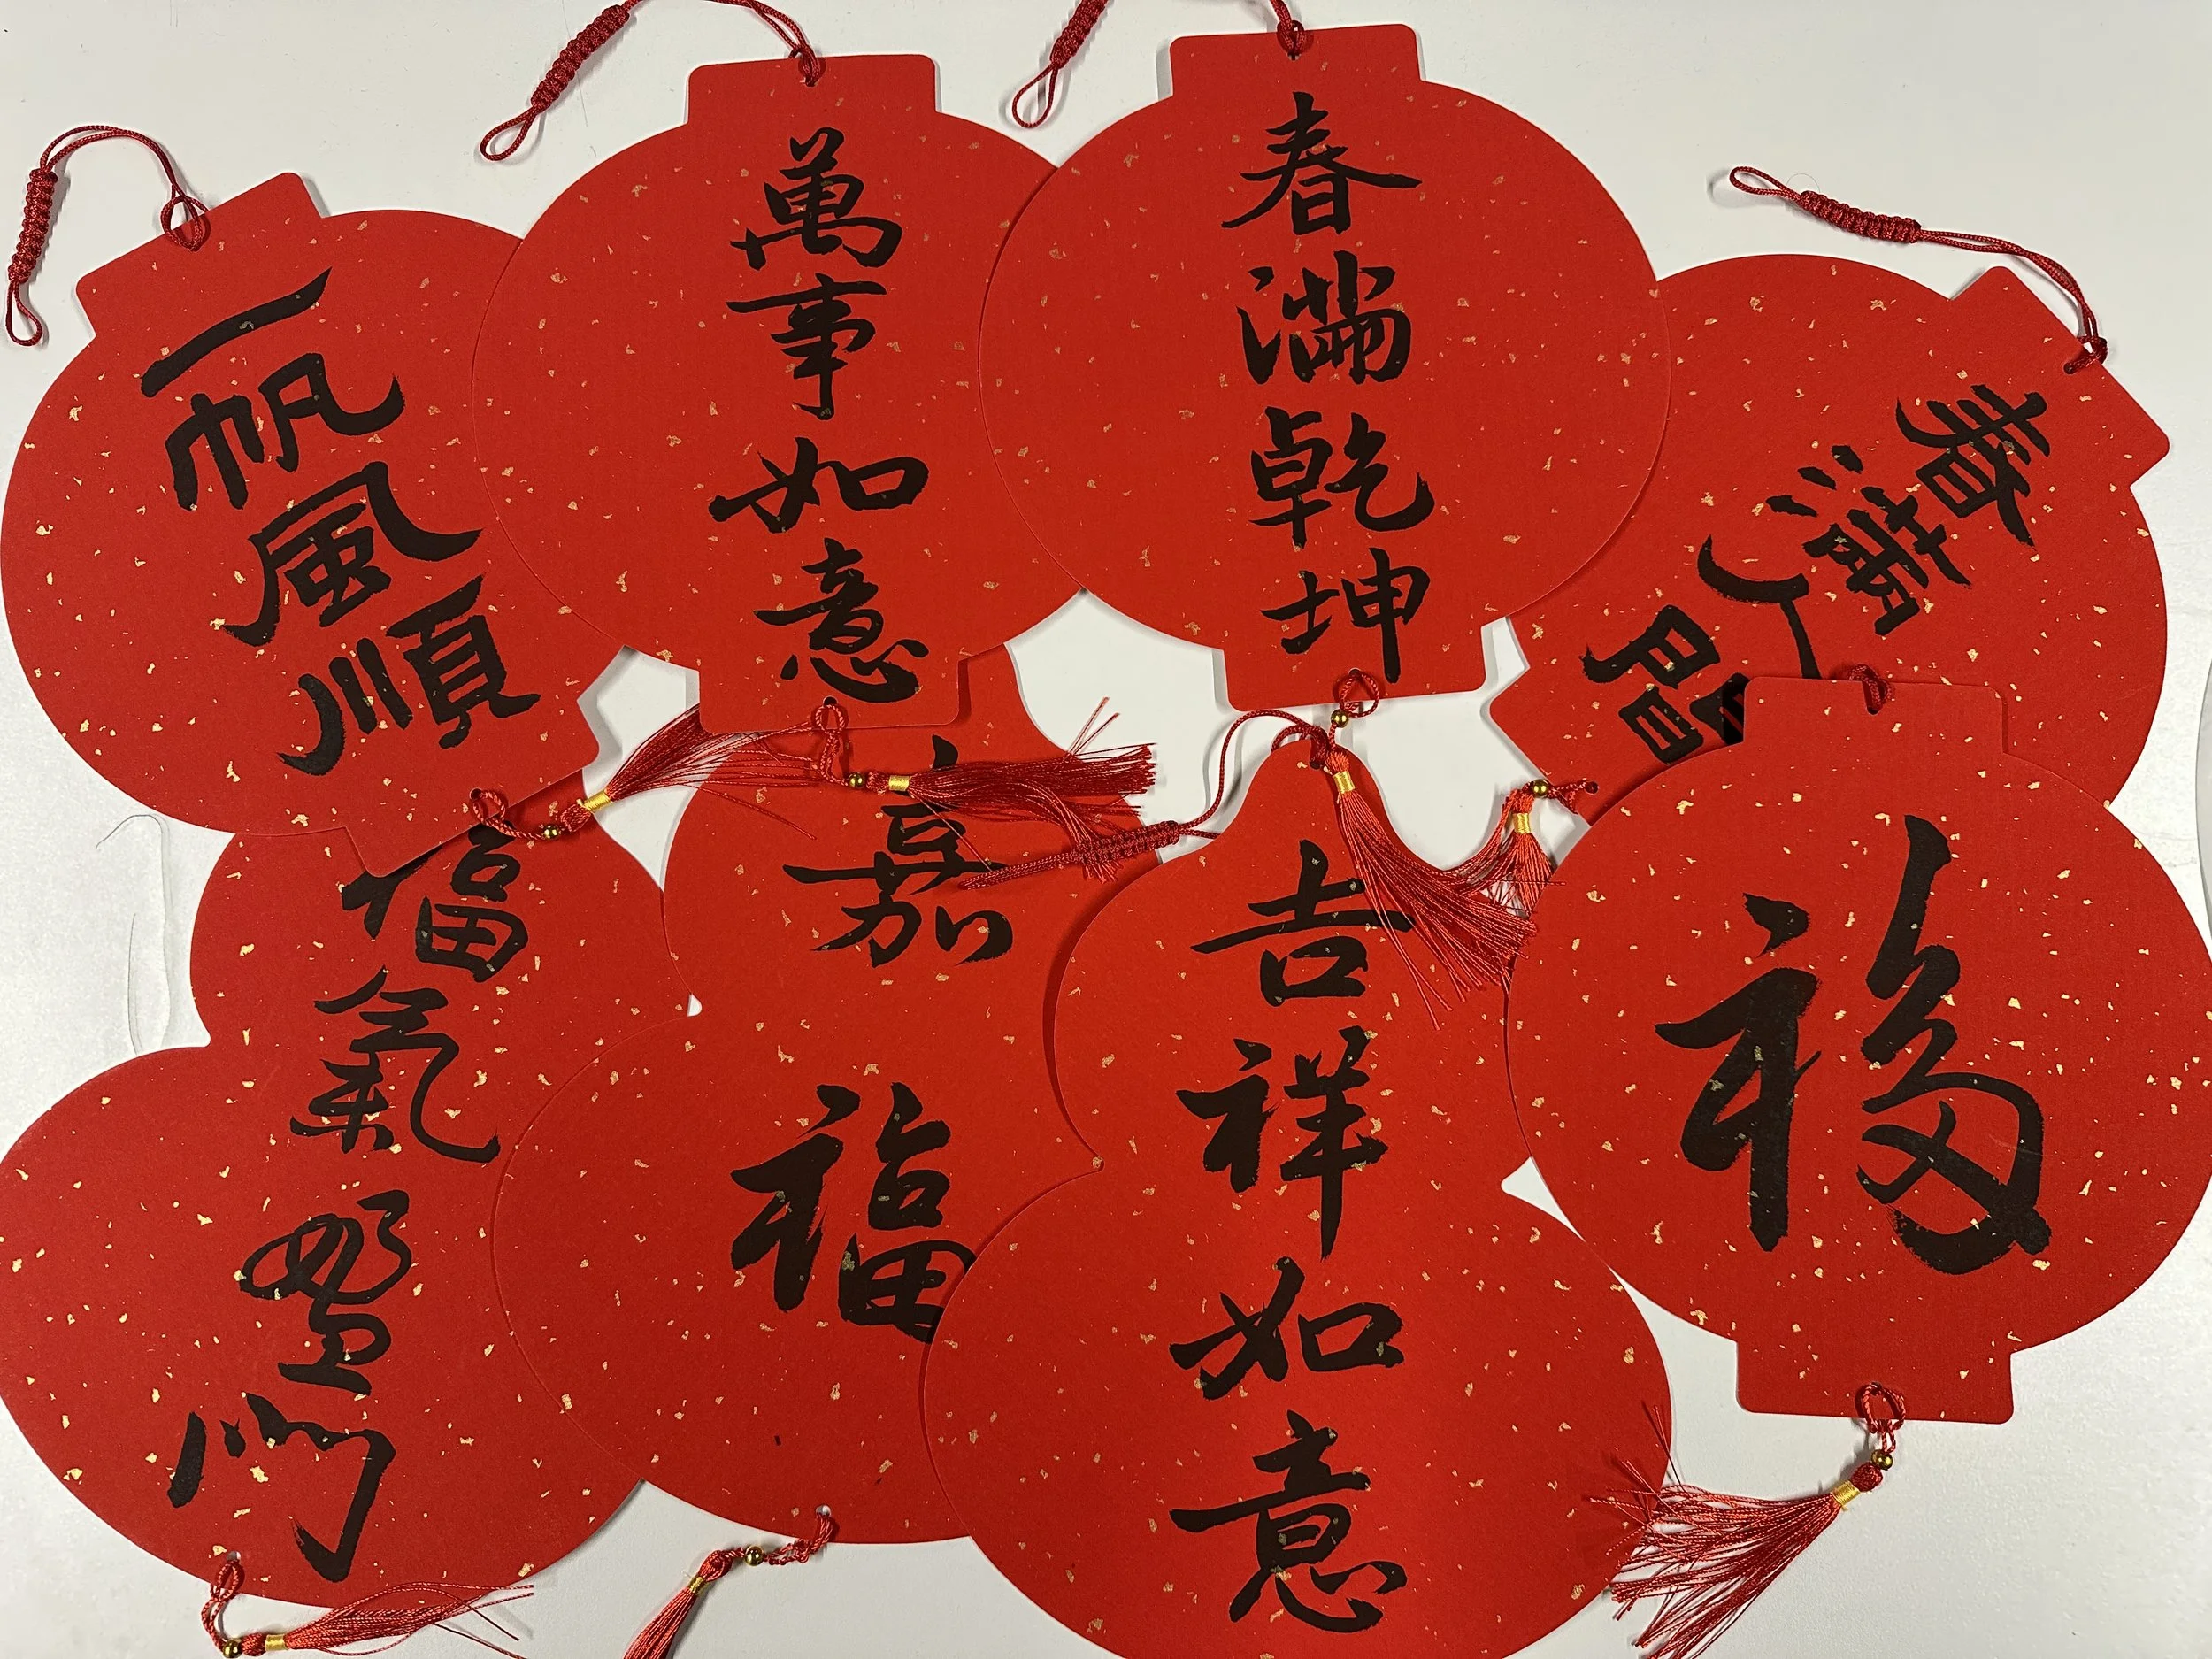 一帆風順
萬事如意
春滿乾坤
春滿人間
福氣盈門
嘉福
吉祥如意
福